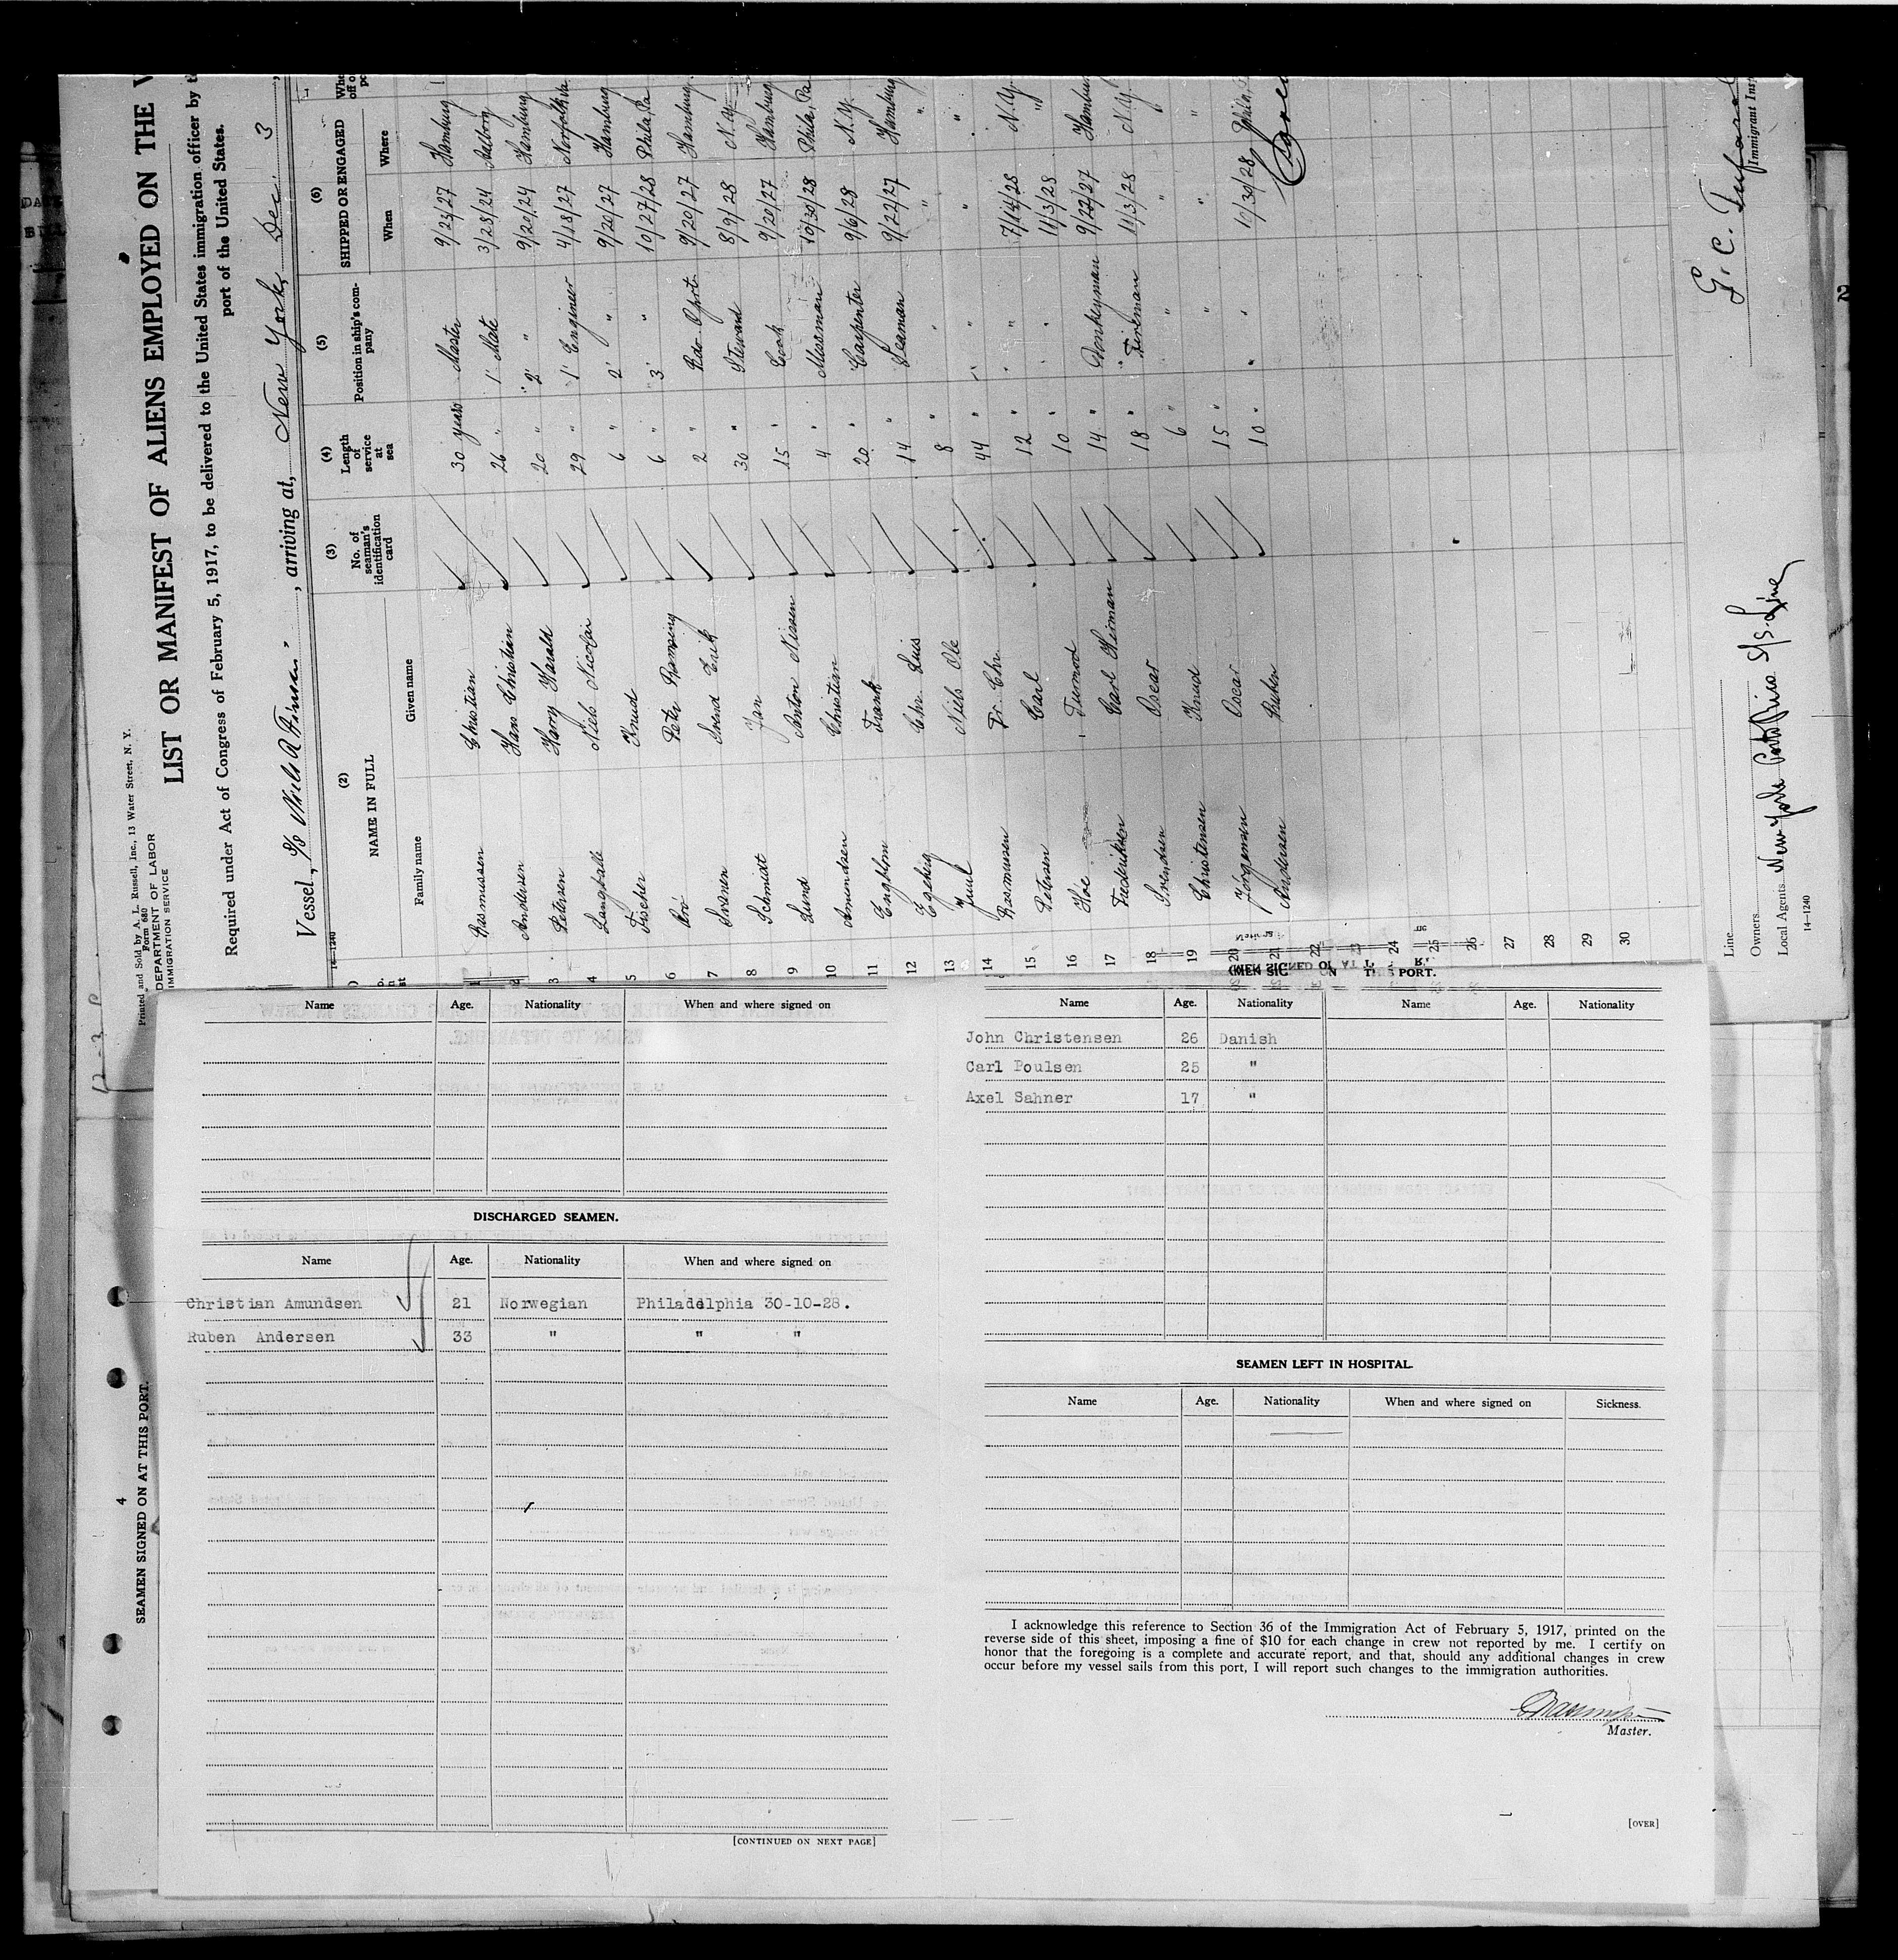 Printed and Sold by A. L. Russell, Inc., 13 Water Street, N. Y.
Form 680
DEPARTMENT OF LABOR
IMMIGRATION SERVICE
LIST OR MANIFEST OF ALIENS EMPLOYED ON THE
Required under Act of Congress of February 5, 1917, to be delivered to the United States immigration officer by
port of the United States.
Vessel, S/S Niels R Finsen, arriving at, New York, Dec. 3
14—1240
(2) (3) (4) (5) (6)
NAME IN FULL No. of seaman's identification card Length of service at sea Position in ship's company SHIPPED OR ENGAGED
Family name Given name When Where
1 Rasmussen Christian 30 years Master 9/23/27 Hamburg
2 Andersen Hans Christian 26 " 1' Mate 3/28/24 Aalborg
3 Petersen Harry Harald 20 " 2' " 9/20/24 Hamburg
4 Langballe Niels Nicolai 29 " 1' Engineer 4/18/27 Norfolk Va
5 Fischer Knud 6 " 2' " 9/20/27 Hamburg
6 Peter 6 " 3' " 10/27/28 Phila, Pa
7 Svanen Svend Erik 2 " 9/20/27 Hamburg
8 Schmidt Jan 30 " Steward 8/9/28 N.Y.
9 Lund Anton Nissen 15 " Cook 9/20/27 Hamburg
10 Amundsen Christian 4 " Messman 10/30/28 Phila, Pa
11 Engblom Frank 20 " Carpenter 9/6/28 N.Y.
12 Egeberg Chr. Luis 14 " Seaman 9/22/27 Hamburg
13 Juul Niels Ole 8 " " " "
14 Rasmussen Fr. Chr. 44 " " " "
15 Petersen Carl 12 " " 7/14/28 N.Y.
16 Hoe 10 " " 11/3/28 "
17 Frederiksen Carl Herman 14 " Donkeyman 9/22/27 Hamburg
18 Svendsen Oscar 18 " Fireman 11/3/28 N.Y.
19 Christensen Knud 6 " " " "
20 Jörgensen Oscar 15 " " " "
21 Andersen Ruben 10 " " 10/30/28 Phila,
22
23
24
25
26
27
28
29
30
Line
Owners
Local Agents New York Porto Rico S/S. Line
14—1240
G. C.
Immigrant
4
SEAMEN SIGNED ON AT THIS PORT.
Name Age. Nationality When and where signed on
DISCHARGED SEAMEN.
Name Age. Nationality When and where signed on
Christian Amundsen 21 Norwegian Philadelphia 30-10-28.
Ruben Andersen 33 " " "
[CONTINUED ON NEXT PAGE]
Name Age. Nationality Name Age. Nationality
John Christensen 26 Danish
Carl Poulsen 25 "
Axel Sahner 17 "
SEAMEN LEFT IN HOSPITAL.
Name Age. Nationality When and where signed on Sickness.
I acknowledge this reference to Section 36 of the Immigration Act of February 5, 1917, printed on the
reverse side of this sheet, imposing a fine of $10 for each change in crew not reported by me. I certify on
honor that the foregoing is a complete and accurate report, and that, should any additional changes in crew
occur before my vessel sails from this port, I will report such changes to the immigration authorities.
Master.
[OVER]